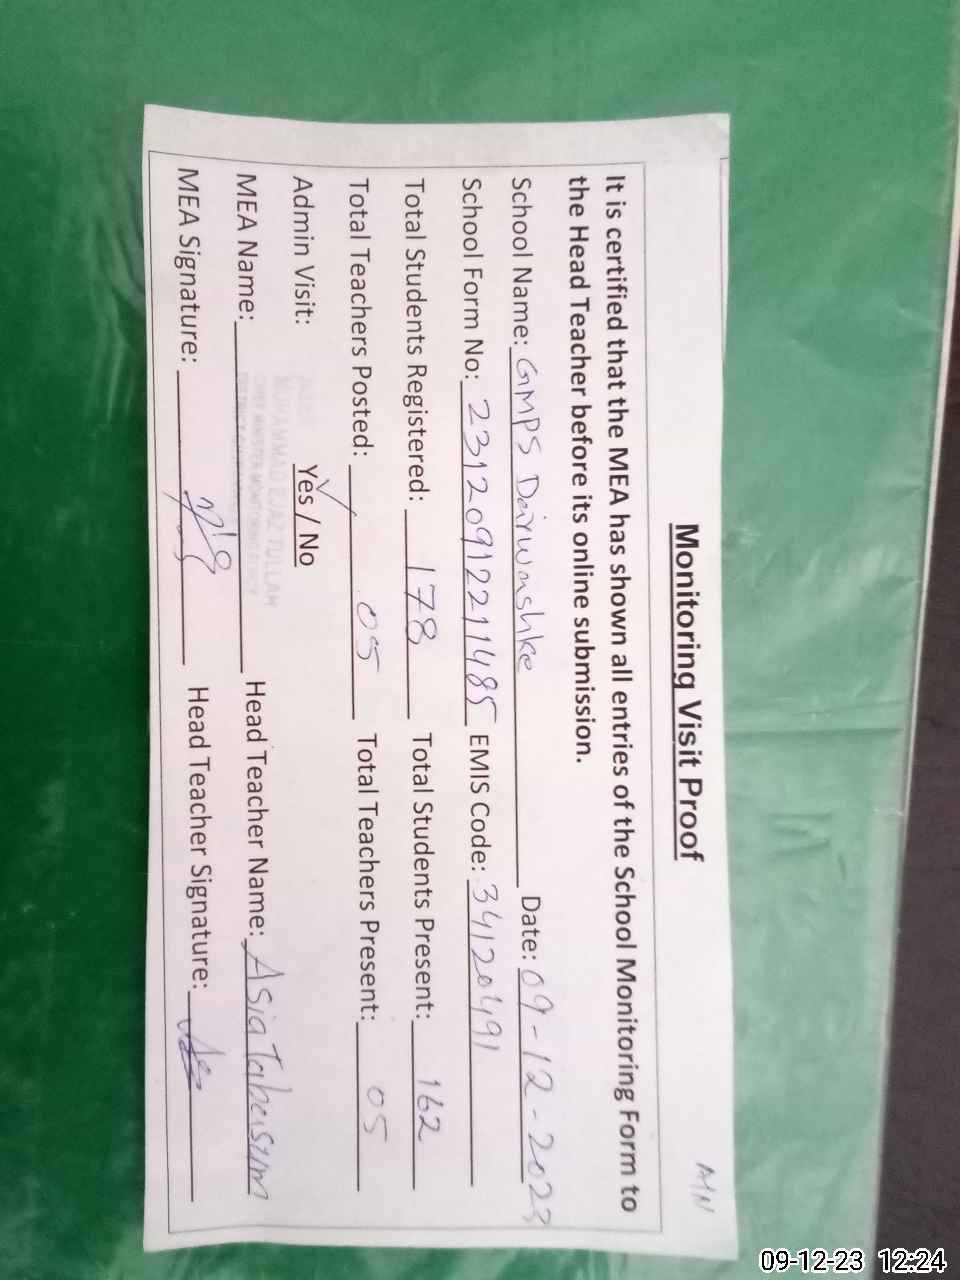 AIN
Monitoring Visit Proof
It is certified that the MEA has shown all entries of the School Monitoring Form to
the Head Teacher before its online submission.
School Name: GMPS Dairwashke Date: 09-12-2023
School Form No: 23120912211485 EMIS Code: 34120491
Total Students Registered: 178 Total Students Present: 162
Total Teachers Posted: 05 Total Teachers Present: 05
Admin Visit: Yes / No
MUHAMMAD EJAZ TULLAH
CHIEF MINISTER MONITORING
MEA Name: Head Teacher Name: Asia Tabassum
MEA Signature: Head Teacher Signature:
09-12-23 12:24